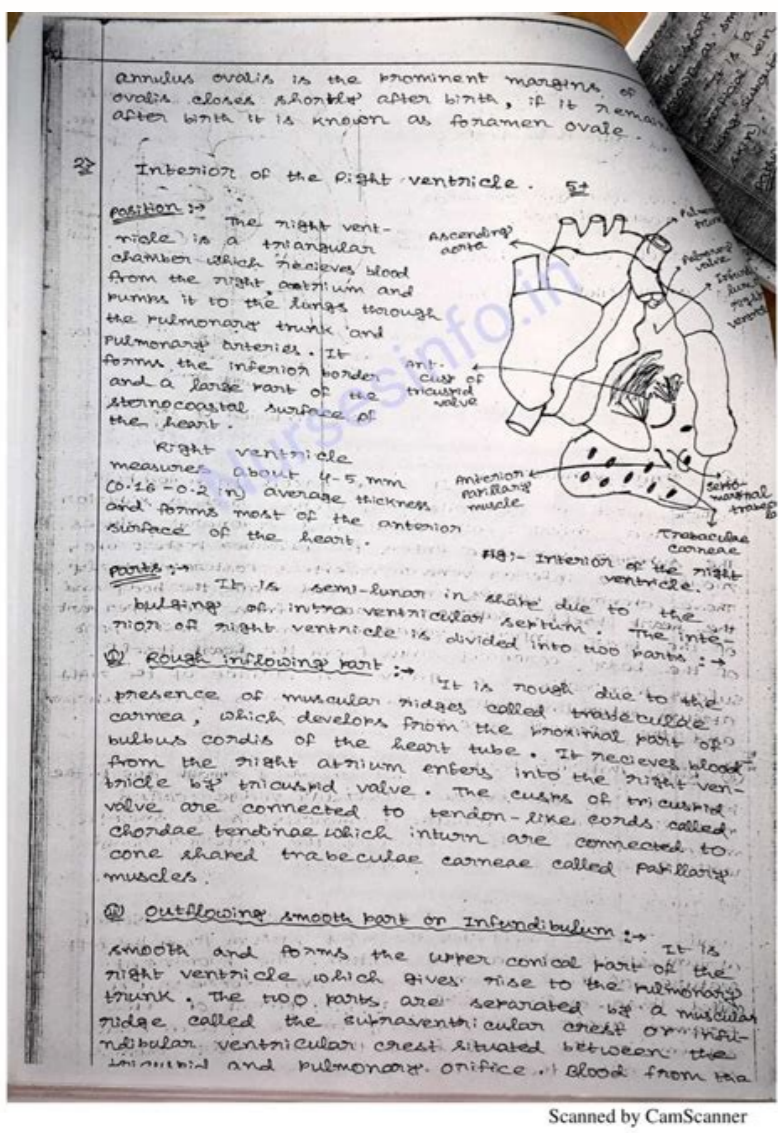 annulus ovalis is the prominent margins of
ovalis closes shortly after birth, if it remai
after birth it is known as foramen ovale.
2> Interior of the Right ventricle. 5+
Position :→
The right vent-
ricle is a triangular
chamber which recieves blood
from the right atrium and
pumps it to the lungs through
the pulmonary trunk and
Pulmonary arteries. It
forms the inferior border
and a large part of the
sternocoastal surface of
the heart.
Right ventricle
measures about 4-5 mm
(0.16-0.2 in) average thickness
and forms most of the anterior
surface of the heart.
Ascending
aorta
Pulmo
trun
Pulmonary
valve
Infund
lum
right
ventri
Ant.
cusp of
tricuspid
valve
Anterior
papillary
muscle
Septo-
marginal
trabep
Trabaculae
carneae
Fig:- Interior of the right
ventricle.
Parts :→
It is semi-lunar in shape due to the
bulging of intra ventricular septum. The inte-
rior of right ventricle is divided into two parts :→
① Rough inflowing part :→ It is rough due to the
presence of muscular ridges called trabeculae
carnea, which develops from the proximal part of
bulbus cordis of the heart tube. It recieves blood
from the right atrium enters into the right ven-
tricle by tricuspid valve. The cusps of tricuspid
valve are connected to tendon-like cords called
chordae tendinae which inturn are connected to
cone shaped trabeculae carneae called papillary
muscles.
② Outflowing smooth part or Infundibulum :→ It is
smooth and forms the upper conical part of the
right ventricle which gives rise to the pulmonary
trunk. The two parts are separated by a muscular
ridge called the supraventricular crest or infu-
ndibular ventricular crest situated between the
tricuspid and pulmonary orifice. Blood from the
Nursesinfo.in
Scanned by CamScanner